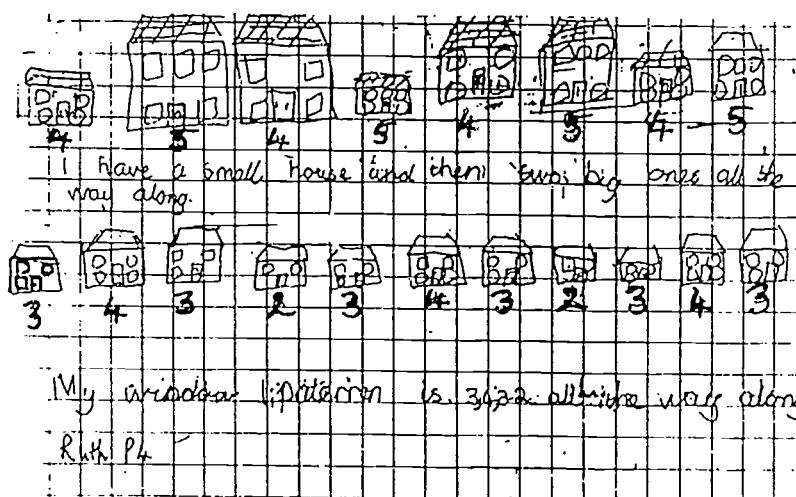 4 5 4 5 4 5 4 5
I have a small house and then two big ones all the
way along.
3 4 3 2 3 4 3 2 3 4 3
My window is 3,4,3,2 all the way along
Ruth P4